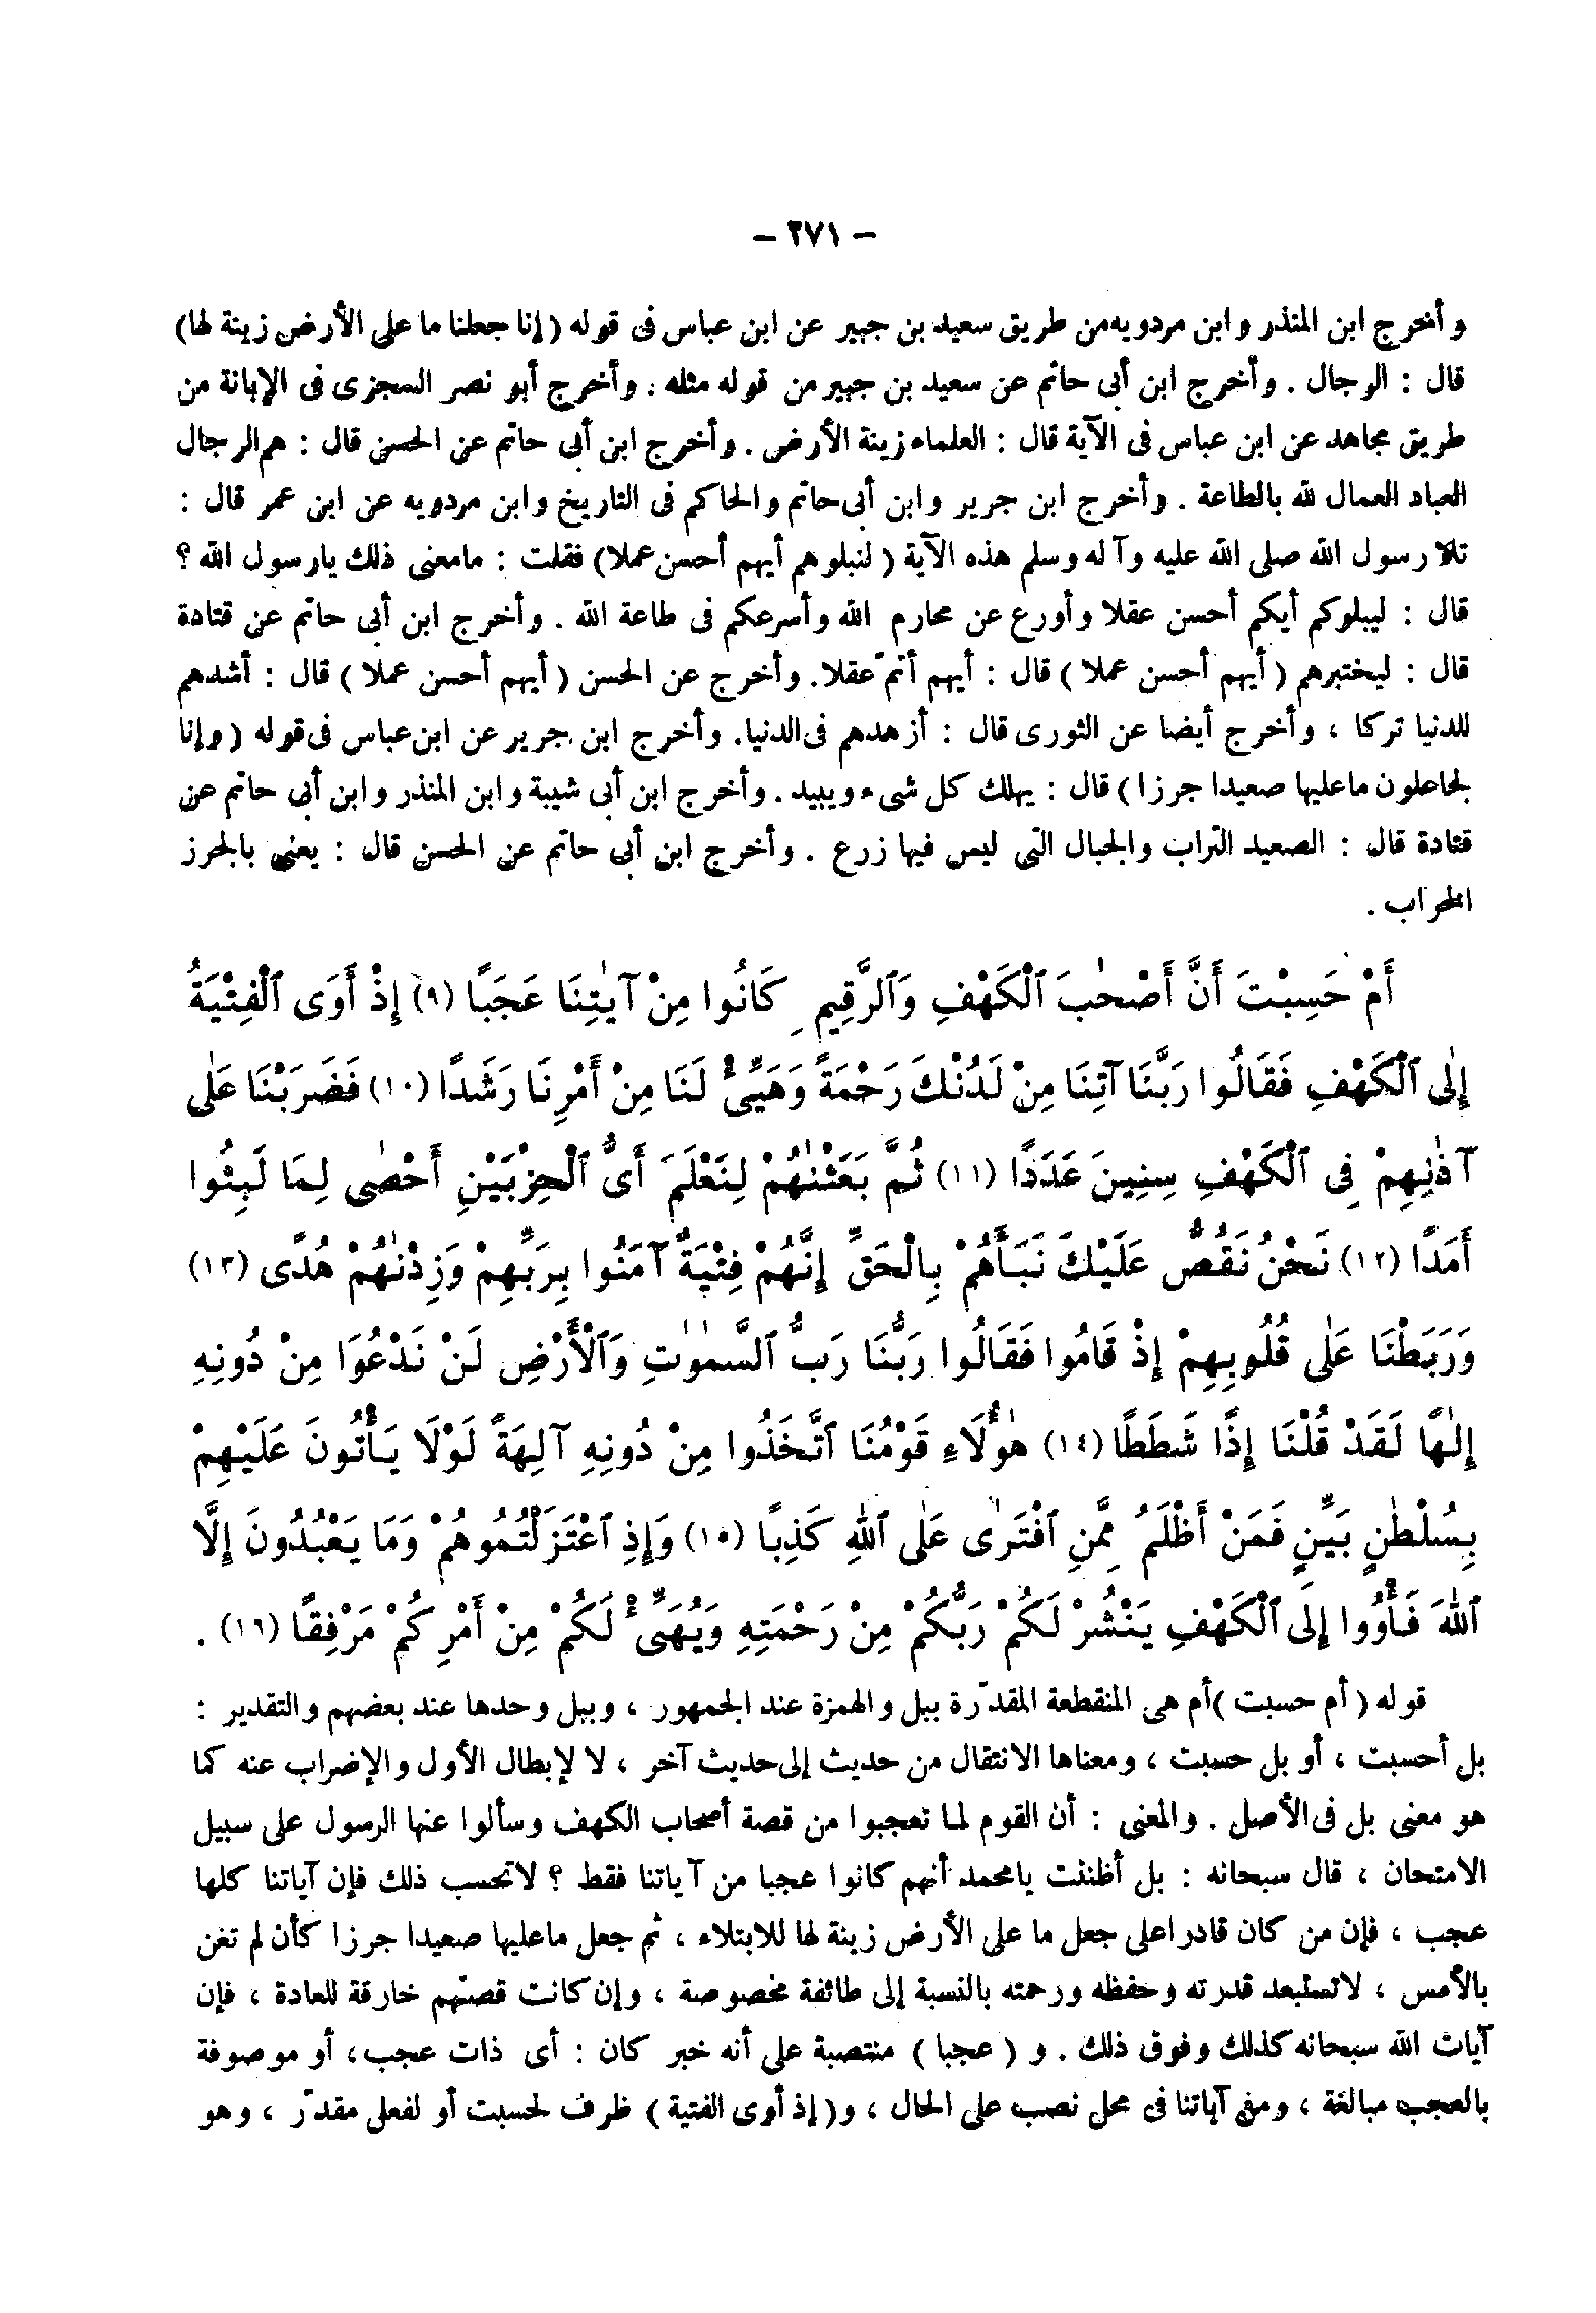 – ٢٧١ –
وأخرج ابن المنذر وابن مردويه من طريق سعيد بن جبير عن ابن عباس فى قوله (إنا جعلنا ما على الأرض زينة لها)
قال : الرجال . وأخرج ابن أبى حاتم عن سعيد بن جبير من قوله مثله . وأخرج أبو نصر السجزى فى الإبانة من
طريق مجاهد عن ابن عباس فى الآية قال : العلماء زينة الأرض . وأخرج ابن أبى حاتم عن الحسن قال : هم الرجال
العباد العمال لله بالطاعة . وأخرج ابن جرير وابن أبى حاتم والحاكم فى التاريخ وابن مردويه عن ابن عمر قال :
تلا رسول الله صلى الله عليه وآله وسلم هذه الآية ( لنبلوهم أيهم أحسن عملا) فقلت : مامعنى ذلك يارسول الله ؟
قال : ليبلوكم أيكم أحسن عقلا وأورع عن محارم الله وأسرعكم فى طاعة الله . وأخرج ابن أبى حاتم عن قتادة
قال : ليختبرهم ( أيهم أحسن عملا ) قال : أيهم أتمّ عقلا. وأخرج عن الحسن ( أيهم أحسن عملا ) قال : أشدهم
للدنيا تركا ، وأخرج أيضا عن الثورى قال : أزهدهم فى الدنيا. وأخرج ابن جرير عن ابن عباس فى قوله ( وإنا
لجاعلون ماعليها صعيدا جرزا ) قال : يهلك كل شىء ويبيد . وأخرج ابن أبى شيبة وابن المنذر وابن أبى حاتم عن
قتادة قال : الصعيد التراب والجبال التى ليس فيها زرع . وأخرج ابن أبى حاتم عن الحسن قال : يعنى بالجرز
الخراب .
أَمْ حَسِبْتَ أَنَّ أَصْحٰبَ ٱلْكَهْفِ وَٱلرَّقِيمِ كَانُوا مِنْ آيٰتِنَا عَجَبًا (٩) إِذْ أَوَى ٱلْفِتْيَةُ
إِلٰى ٱلْكَهْفِ فَقَالُوا رَبَّنَا آتِنَا مِنْ لَدُنْكَ رَحْمَةً وَهَيِّئْ لَنَا مِنْ أَمْرِنَا رَشَدًا (١٠) فَضَرَبْنَا عَلٰى
آذٰنِهِمْ فِى ٱلْكَهْفِ سِنِينَ عَدَدًا (١١) ثُمَّ بَعَثْنٰهُمْ لِنَعْلَمَ أَىُّ ٱلْحِزْبَيْنِ أَحْصٰى لِمَا لَبِثُوا
أَمَدًا (١٢) نَحْنُ نَقُصُّ عَلَيْكَ نَبَأَهُمْ بِالْحَقِّ إِنَّهُمْ فِتْيَةٌ آمَنُوا بِرَبِّهِمْ وَزِدْنٰهُمْ هُدًى (١٣)
وَرَبَطْنَا عَلٰى قُلُوبِهِمْ إِذْ قَامُوا فَقَالُوا رَبُّنَا رَبُّ ٱلسَّمٰوٰتِ وَٱلْأَرْضِ لَنْ نَدْعُوَا مِنْ دُونِهِ
إِلٰهًا لَقَدْ قُلْنَا إِذًا شَطَطًا (١٤) هٰؤُلَاءِ قَوْمُنَا ٱتَّخَذُوا مِنْ دُونِهِ آلِهَةً لَوْلَا يَأْتُونَ عَلَيْهِمْ
بِسُلْطٰنٍ بَيِّنٍ فَمَنْ أَظْلَمُ مِمَّنِ ٱفْتَرٰى عَلٰى ٱللهِ كَذِبًا (١٥) وَإِذِ ٱعْتَزَلْتُمُوهُمْ وَمَا يَعْبُدُونَ إِلَّا
ٱللهَ فَأْوُوا إِلَى ٱلْكَهْفِ يَنْشُرْ لَكُمْ رَبُّكُمْ مِنْ رَحْمَتِهِ وَيُهَيِّئْ لَكُمْ مِنْ أَمْرِكُمْ مَرْفِقًا (١٦) .
قوله ( أم حسبت ) أم هى المنقطعة المقدّرة ببل والهمزة عند الجمهور ، وببل وحدها عند بعضهم والتقدير :
بل أحسبت ، أو بل حسبت ، ومعناها الانتقال من حديث إلى حديث آخر ، لا لإبطال الأول والإضراب عنه كما
هو معنى بل فى الأصل . والمعنى : أن القوم لما تعجبوا من قصة أصحاب الكهف وسألوا عنها الرسول على سبيل
الامتحان ، قال سبحانه : بل أظننت يامحمد أنهم كانوا عجبا من آياتنا فقط ؟ لاتحسب ذلك فإن آياتنا كلها
عجب ، فإن من كان قادرا على جعل ما على الأرض زينة لها للابتلاء ، ثم جعل ماعليها صعيدا جرزا كأن لم تغن
بالأمس ، لاتستبعد قدرته وحفظه ورحمته بالنسبة إلى طائفة مخصوصة ، وإن كانت قصتهم خارقة للعادة ، فإن
آيات الله سبحانه كذلك وفوق ذلك . و ( عجبا ) منتصبة على أنه خبر كان : أى ذات عجب، أو موصوفة
بالعجب مبالغة ، ومن آياتنا فى محل نصب على الحال ، و( إذ أوى الفتية ) ظرف لحسبت أو لفعل مقدّر ، وهو